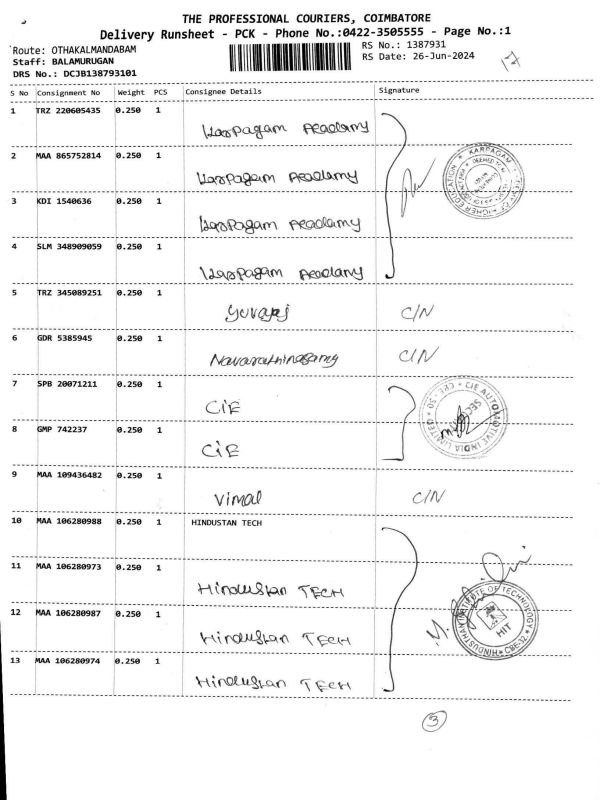 THE PROFESSIONAL COURIERS, COIMBATORE
Delivery Runsheet - PCK - Phone No.:0422-3505555 - Page No.:1
Route: OTHAKALMANDABAM RS No.: 1387931
Staff: BALAMURUGAN RS Date: 26-Jun-2024
17
DRS No.: DCJB138793101
S No Consignment No Weight PCS Consignee Details Signature
1 TRZ 220605435 0.250 1
Karpagam Academy
2 MAA 865752814 0.250 1
Karpagam Academy
KARPAGAM
3 KDI 1540636 0.250 1
Karpagam Academy
4 SLM 348909059 0.250 1
Karpagam Academy
5 TRZ 345089251 0.250 1
Yuvaraj C/N
6 GDR 5385945 0.250 1
Navarathinasamy C/N
7 SPB 20071211 0.250 1
CIE
CIE AUTOMOTIVE INDIA LIMITED
8 GMP 742237 0.250 1
CIE
9 MAA 109436482 0.250 1
Vimal C/N
10 MAA 106280988 0.250 1 HINDUSTAN TECH
11 MAA 106280973 0.250 1
Hindustan TECH
12 MAA 106280987 0.250 1
Hindustan TECH
HINDUSTHAN INSTITUTE OF TECHNOLOGY CBE-32
HIT
13 MAA 106280974 0.250 1
Hindustan TECH
3